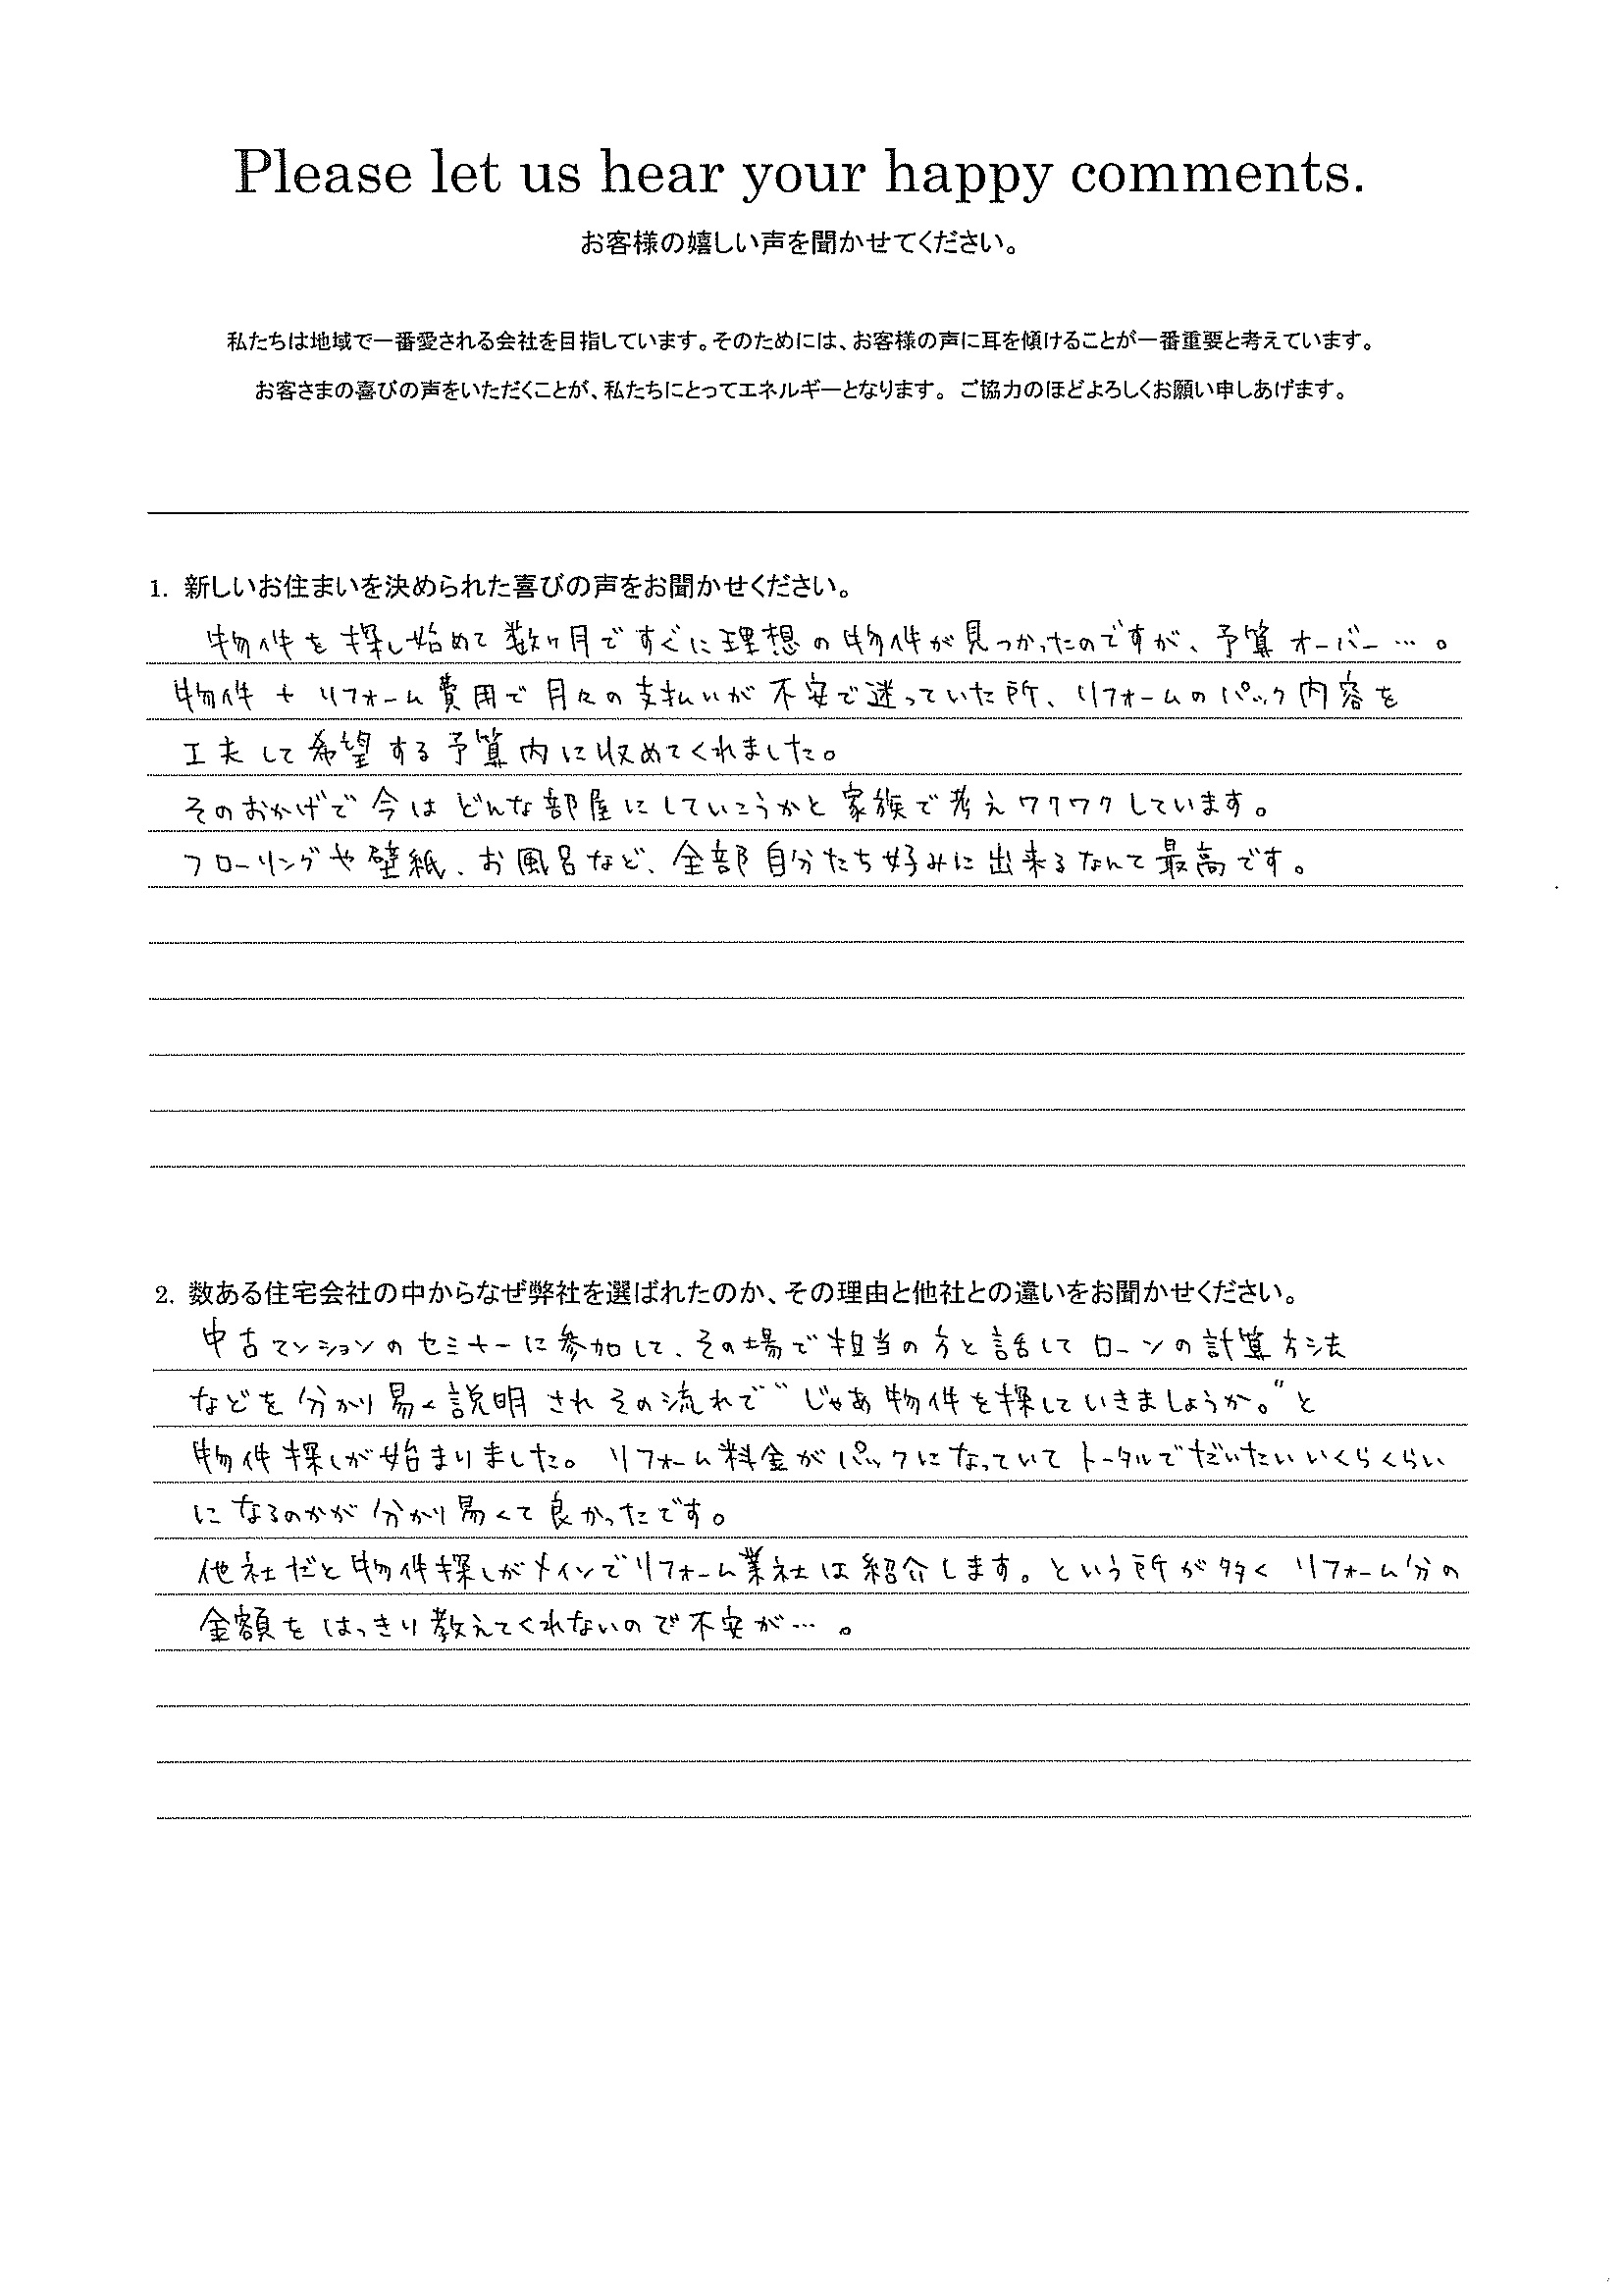 Please let us hear your happy comments.
お客様の嬉しい声を聞かせてください。
私たちは地域で一番愛される会社を目指しています。そのためには、お客様の声に耳を傾けることが一番重要と考えています。
お客さまの喜びの声をいただくことが、私たちにとってエネルギーとなります。 ご協力のほどよろしくお願い申しあげます。
1. 新しいお住まいを決められた喜びの声をお聞かせください。
物件を探し始めて数ヶ月ですぐに理想の物件が見つかったのですが、予算オーバー…。
物件+リフォーム費用で月々の支払いが不安で迷っていた所、リフォームのパック内容を
工夫して希望する予算内に収めてくれました。
そのおかげで今はどんな部屋にしていこうかと家族で考えワクワクしています。
フローリングや壁紙、お風呂など、全部自分たち好みに出来るなんて最高です。
2. 数ある住宅会社の中からなぜ弊社を選ばれたのか、その理由と他社との違いをお聞かせください。
中古マンションのセミナーに参加して、その場で担当の方と話してローンの計算方法
などを分かり易く説明されその流れで"じゃあ物件を探していきましょうか。"と
物件探しが始まりました。リフォーム料金がパックになっていてトータルでだいたいいくらくらい
になるのかが分かり易くて良かったです。
他社だと物件探しがメインでリフォーム業社は紹介します。という所が多くリフォーム分の
金額をはっきり教えてくれないので不安が…。